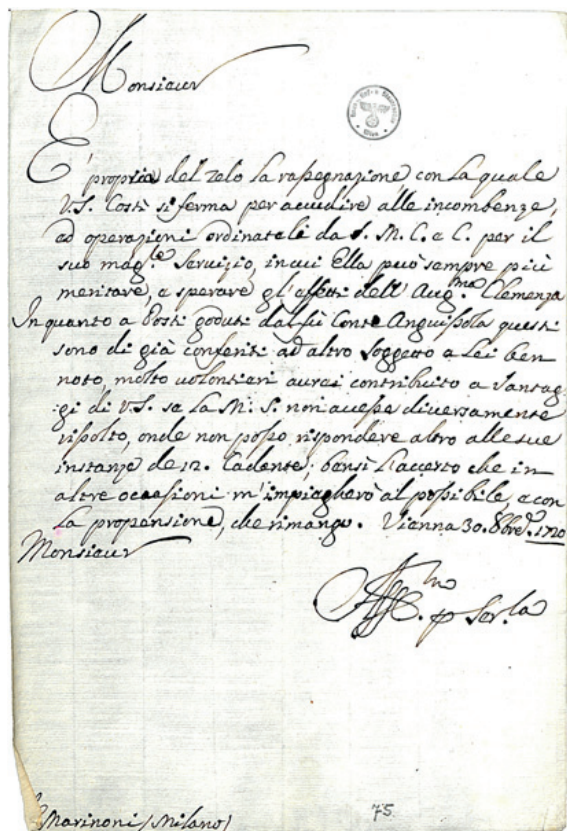 Monsieur
È proprio del zelo la rassegnazione, con la quale
V.S. Costì si ferma per accudire alle incombenze,
ad operazioni ordinateli da S. M. C. e C. per il
suo mag.re Servizio, in cui Ella può sempre più
meritare, e sperare gl'effetti dell'Aug.ma Clemenza
In quanto a Posti goduti dal fù Conte Anguissola questi
sono di già conferiti ad altro Soggetto a Lei ben
noto, molto volontieri avrei contribuito a vantag-
gi di V.S. se la M. S. non avesse diversamente
risolto, onde non posso rispondere altro alle sue
instanze de 12. Cadente; bensì l'accerto che in
altre occasioni m'impiegherò al possibile, e con
la propensione, che rimango. Vienna 30. 8bre. 1720
Monsieur
Aff.mo p Ser.la
Marinoni (Milano)
75